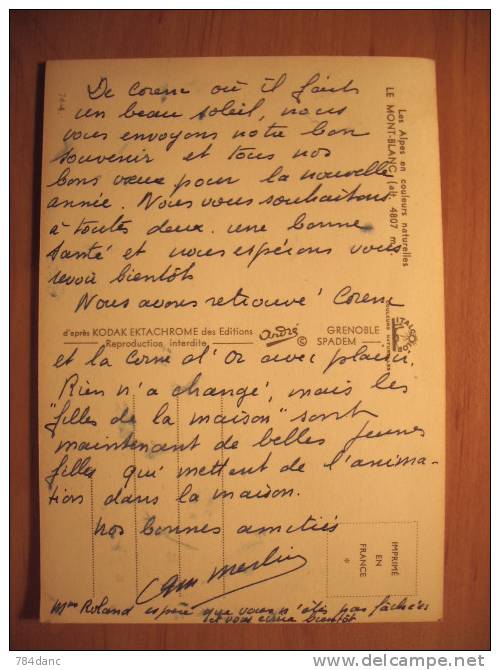 De Corenc où il fait
un beau soleil, nous
vous envoyons notre bon
souvenir et tous nos
bons vœux pour la nouvelle
année. Nous vous souhaitons
à toutes deux une bonne
santé et nous espérons vous
revoir bientôt
Nous avons retrouvé Corenc
et la corne d'Or avec plaisir.
Rien n'a changé, mais les
"filles de la maison" sont
maintenant de belles jeunes
filles qui mettent de l'anima-
tion dans la maison.
Nos bonnes amitiés
Merlin
Mme Roland espère que vous n'êtes pas fâchées
et vous écrira bientôt
Les Alpes en couleurs naturelles
LE MONT-BLANC (alt. 4807 m.)
d'après KODAK EKTACHROME des Editions
Reproduction interdite
André
©
GRENOBLE
SPADEM
COULEURS NATURELLES
IMPRIMÉ
EN
FRANCE
*
784danc
http://www.delcampe.net